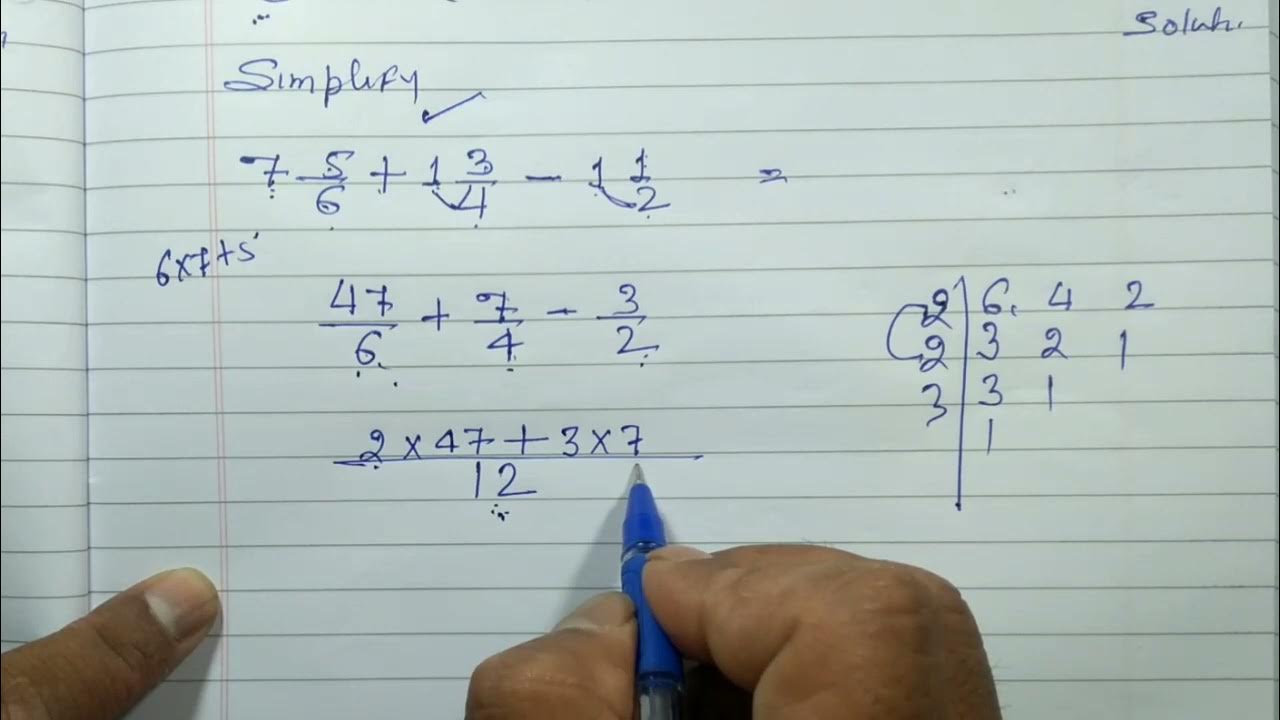 Solut.
Simplify
7 5/6 + 1 3/4 - 1 1/2 =
6×7+5
47/6 + 7/4 - 3/2
2 × 47 + 3 × 7
12
2 | 6 4 2
2 | 3 2 1
3 | 3 1
1